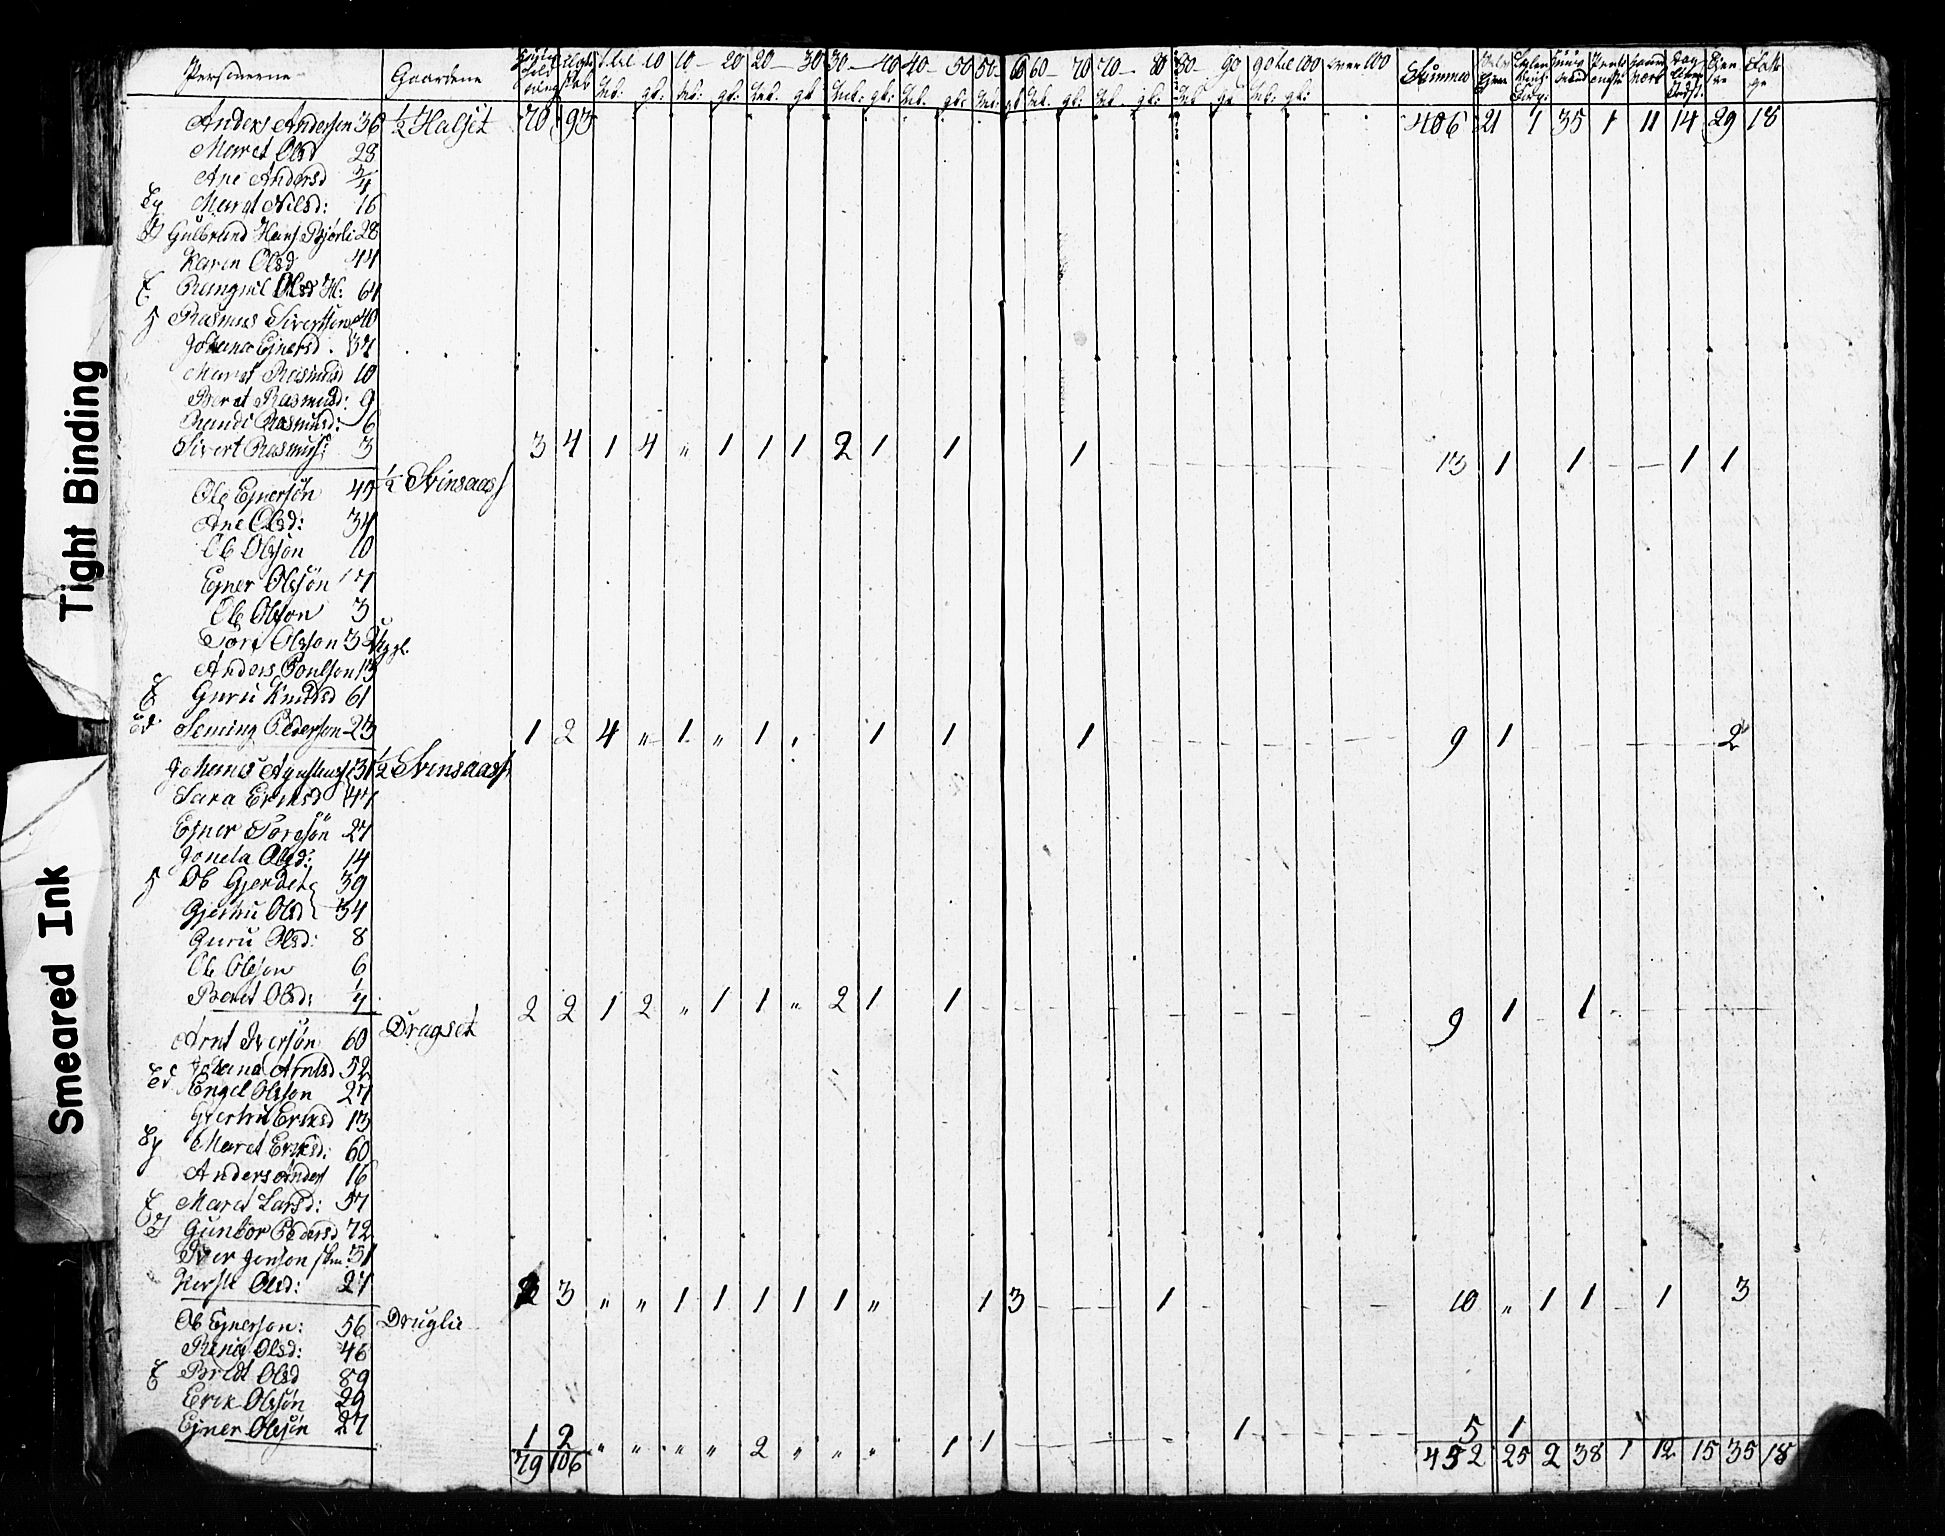 Tight Binding
Smeared Ink
Personerne Gaardene 1 til 10 10 — 20 20 — 30 30 — 40 40 — 50 50 — 60 60 — 70 70 — 80 80 — 90 90 til 100 over 100 Summa
Anders Andersen 36 ½ Halset 70 93 406 21 1 35 1 11 14 29 18
Maret Olsd 28
Ane Andersd ¾
Maret Nilsd: 16
Gulbrand Hans. Bjørli 28
Karen Olsd 44
Rangnil Olsd 64
Rasmus Sivertsen 40
Johana Ejnersd. 37
Maret Rasmusd 10
Beret Rasmusd: 9
Randi Rasmusd: 6
Sivert Rasmus: 3 3 4 1 4 " 1 1 1 2 1 1 1 13 1 1 1 1
Ole Ejnersøn 47 ½ Svinsaas
Ane Olsd: 34
Ole Olsøn 10
Ejner Olsøn 7
Ole Olson 3
Tore Olsson 32
Anders Poulson 13
Guru Knudsd 61
Seming Pederson 23 1 2 4 " 1 " 1 1 1 1 9 1 2
Johanes 31 ½ Svinsaas
Sara Eriksd 47
Ejner Toresøn 27
Joneta Olsd: 14
Ole Gjerdet 39
Gjertru Olsd 34
Guru Olsd: 8
Ole Olsson 6
Beret Olsd: ¼ 2 2 1 2 " 1 1 " 2 1 1 9 1 1
Arnt Iversøn 60 Dragset
Johana Arntsd 52
Engel Olsson 27
Gjertru Eriksd 13
Maret Eriksd: 60
Anders Anders 16
Maret Larsd: 57
Guntor Pedersd 72
Iver Jonson 31
Kirsti Olsd: 27 2 3 " " 1 1 1 1 1 " 1 3 1 10 " 1 1 1 3
Ole Ejnerson: 56 Druglie
Olsd: 46
Olsd 89
Erik Olssøn 29
Ejner Olssøn 27 1 2 " " " " 2 " " " 1 1 1 5 1
79 106 452 25 2 38 1 12 15 35 18